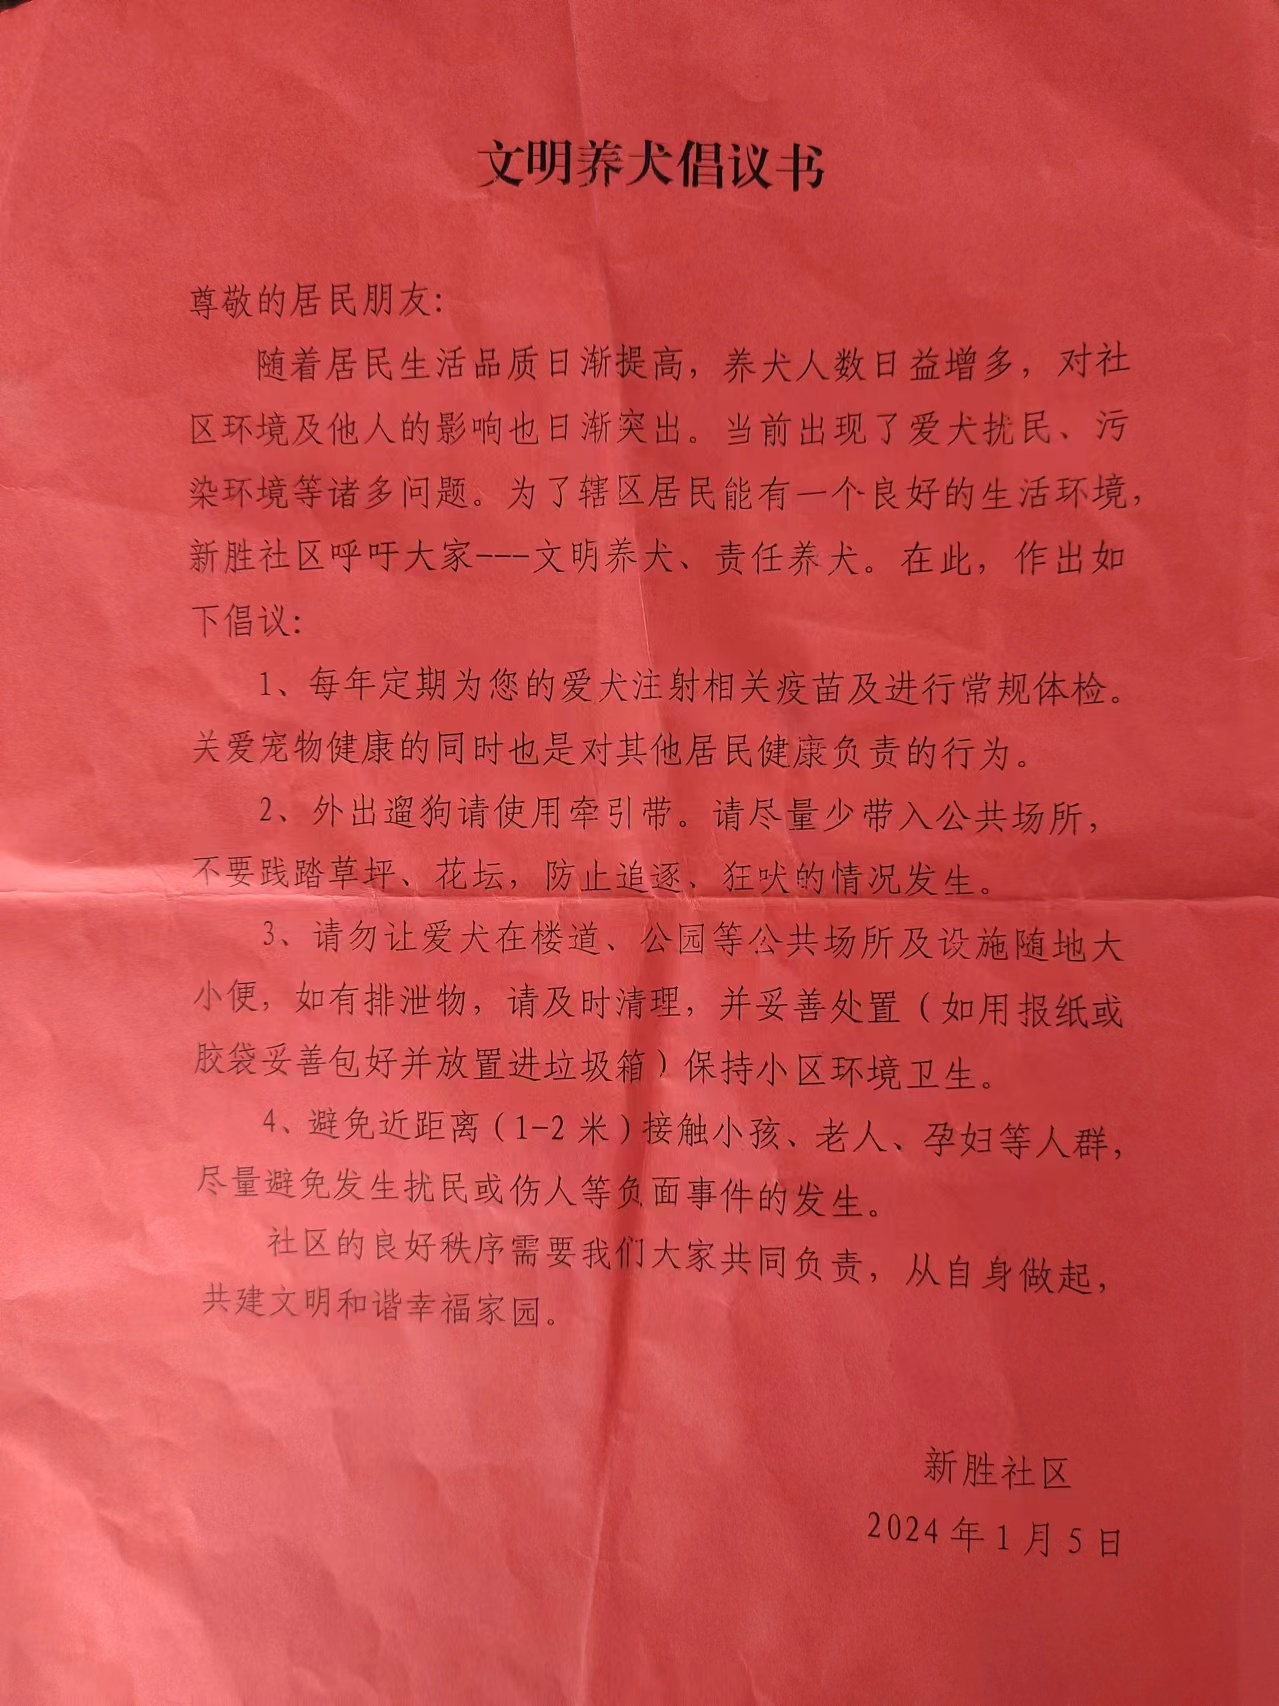 文明养犬倡议书
尊敬的居民朋友：
随着居民生活品质日渐提高，养犬人数日益增多，对社
区环境及他人的影响也日渐突出。当前出现了爱犬扰民、污
染环境等诸多问题。为了辖区居民能有一个良好的生活环境，
新胜社区呼吁大家---文明养犬、责任养犬。在此，作出如
下倡议：
1、每年定期为您的爱犬注射相关疫苗及进行常规体检。
关爱宠物健康的同时也是对其他居民健康负责的行为。
2、外出遛狗请使用牵引带。请尽量少带入公共场所，
不要践踏草坪、花坛，防止追逐、狂吠的情况发生。
3、请勿让爱犬在楼道、公园等公共场所及设施随地大
小便，如有排泄物，请及时清理，并妥善处置（如用报纸或
胶袋妥善包好并放置进垃圾箱）保持小区环境卫生。
4、避免近距离（1-2 米）接触小孩、老人、孕妇等人群，
尽量避免发生扰民或伤人等负面事件的发生。
社区的良好秩序需要我们大家共同负责，从自身做起，
共建文明和谐幸福家园。
新胜社区
2024 年 1 月 5 日